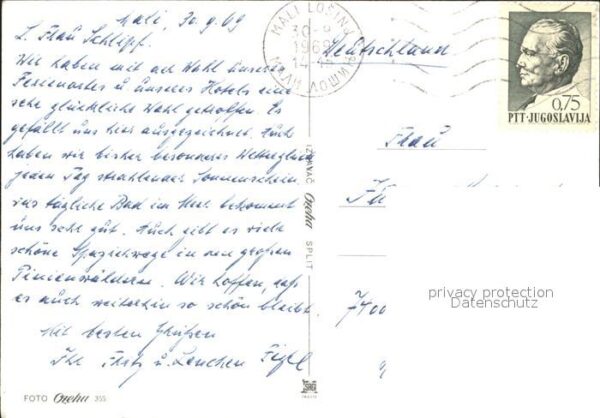 Mali, 30.9.69
L. Frau Schlipf.
Wir haben mit der Wahl unseres
Ferienortes u. unseres Hotels eine
sehr glückliche Wahl getroffen. Es
gefällt uns hier ausgezeichnet. Auch
haben wir bisher besonderes Wetterglück
jeden Tag strahlender Sonnenschein.
das tägliche Bad im Meer bekommt
uns sehr gut. Auch gibt es viele
schöne Spazierwege in den großen
Pinienwäldern. Wir hoffen, daß
es auch weiterhin so schön bleibt.
Mit besten Grüßen
Ihr Fritz u. Lenchen
FOTO Ozeha 355
IZDAVAČ Ozeha SPLIT
MALI LOŠINJ
30-9
196
14
Deutschland
0,75
PTT-JUGOSLAVIJA
Frau
7400
privacy protection
Datenschutz